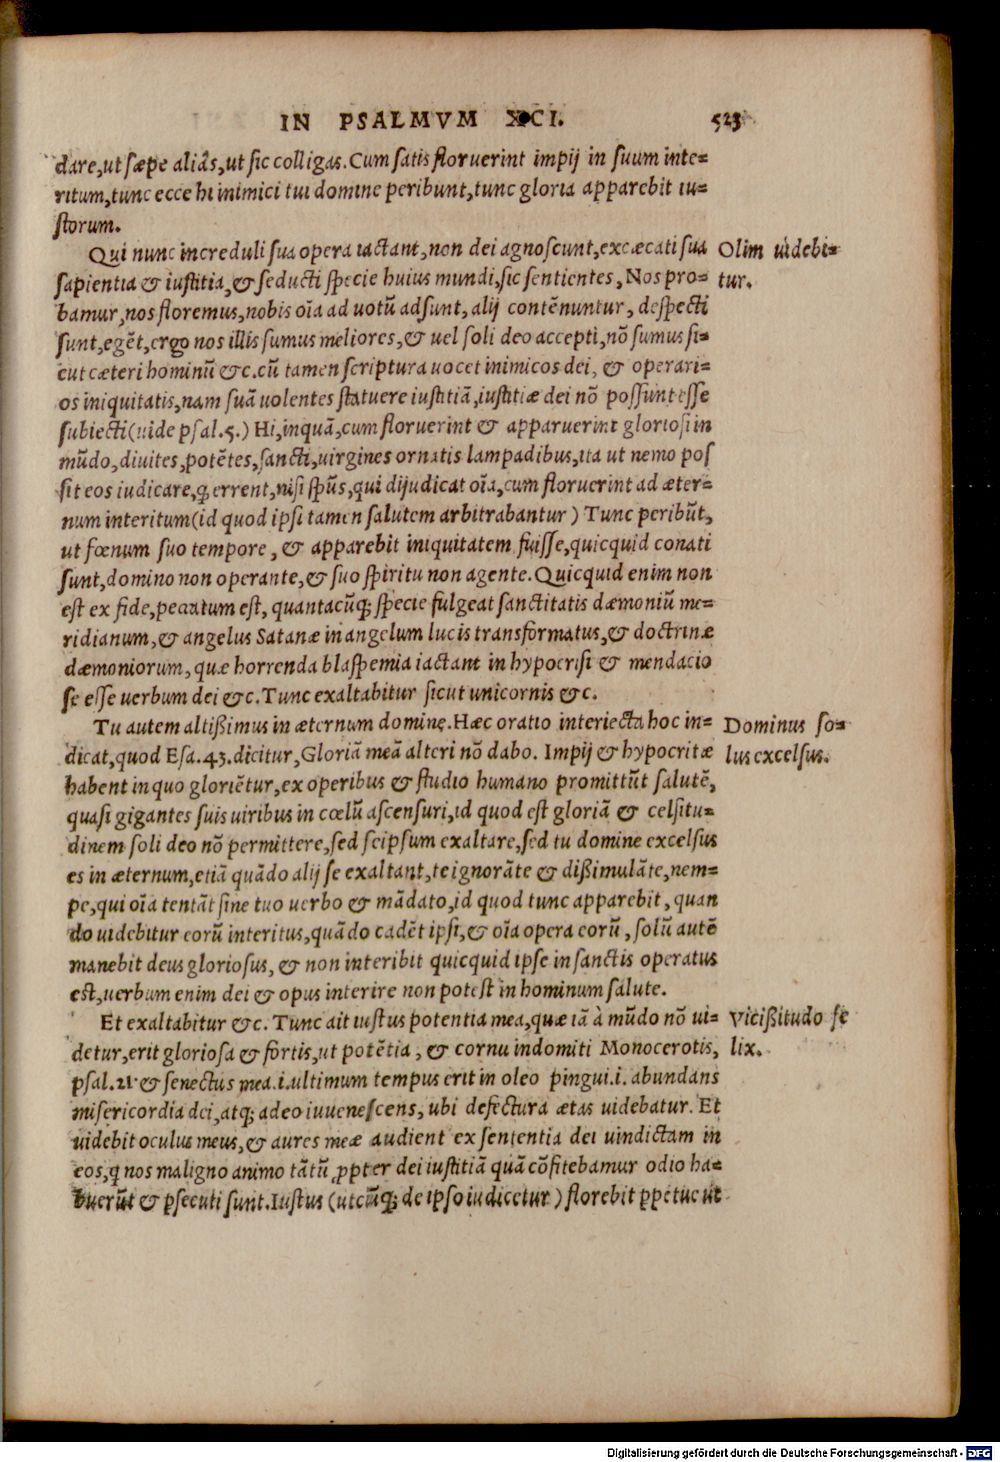 IN PSALMVM XCI. 523
dare,ut sæpe aliâs,ut sic colligas.Cum satis floruerint impij in suum inte=
ritum,tunc ecce hi inimici tui domine peribunt,tunc gloria apparebit iu=
storum.
Qui nunc increduli sua opera iactant,non dei agnoscunt,excæcati sua
Olim uidebi=
sapientia & iustitia,& seducti specie huius mundi,sic sentientes, Nos pro=
tur.
bamur,nos floremus,nobis oĩa ad uotũ adsunt,alij contẽnuntur, despecti
sunt,egẽt,ergo nos illis sumus meliores,& uel soli deo accepti,nõ sumus si=
cut cæteri hominũ &c.cũ tamen scriptura uocet inimicos dei, & operari=
os iniquitatis,nam suã uolentes statuere iustitiã,iustitiæ dei nõ possunt esse
subiecti(uide psal.5.) Hi,inquã,cum floruerint & apparuerint gloriosi in
mũdo,diuites,potẽtes,sancti,uirgines ornatis lampadibus,ita ut nemo pos
sit eos iudicare,q̃ errent,nisi spũs,qui dijudicat oĩa,cum floruerint ad æter=
num interitum(id quod ipsi tamen salutem arbitrabantur) Tunc peribũt,
ut fœnum suo tempore, & apparebit iniquitatem fuisse,quicquid conati
sunt,domino non operante,& suo spiritu non agente.Quicquid enim non
est ex fide,peccatum est, quantacũq; specie fulgeat sanctitatis dæmoniũ me=
ridianum,& angelus Satanæ in angelum lucis transformatus,& doctrinæ
dæmoniorum,quæ horrenda blaspemia iactant in hypocrisi & mendacio
se esse uerbum dei &c.Tunc exaltabitur sicut unicornis &c.
Tu autem altißimus in æternum dominę.Hæc oratio interiecta hoc in=
Dominus so=
dicat,quod Esa.43.dicitur,Gloriã meã alteri nõ dabo. Impij & hypocritæ
lus excelsus.
habent in quo gloriẽtur,ex operibus & studio humano promittũt salutẽ,
quasi gigantes suis uiribus in cœlũ ascensuri,id quod est gloriã & celsitu=
dinem soli deo nõ permittere,sed seipsum exaltare,sed tu domine excelsus
es in æternum,etiã quãdo alij se exaltant,te ignorãte & dißimulãte,nem=
pe,qui oĩa tentãt sine tuo uerbo & mãdato,id quod tunc apparebit, quan
do uidebitur eorũ interitus,quãdo cadẽt ipsi,& oĩa opera eorũ, solũ autẽ
manebit deus gloriosus, & non interibit quicquid ipse in sanctis operatus
est,uerbum enim dei & opus interire non potest in hominum salute.
Et exaltabitur &c. Tunc ait iustus potentia mea,quæ iã à mũdo nõ ui=
Vicißitudo fe
detur,erit gloriosa & fortis,ut potẽtia, & cornu indomiti Monocerotis,
lix.
psal.21.& senectus mea.i.ultimum tempus erit in oleo pingui.i. abundans
misericordia dei,atq; adeo iuuenescens, ubi defectura ætas uidebatur. Et
uidebit oculus meus,& aures meæ audient ex sententia dei uindictam in
eos,q̃ nos maligno animo tãtũ ꝓpter dei iustitiã quã cõfitebamur odio ha=
buerũt & ꝑsecuti sunt.Iustus (utcũq; de ipso iudicetur) florebit ꝑpetuo ut
Digitalisierung gefördert durch die Deutsche Forschungsgemeinschaft - DFG